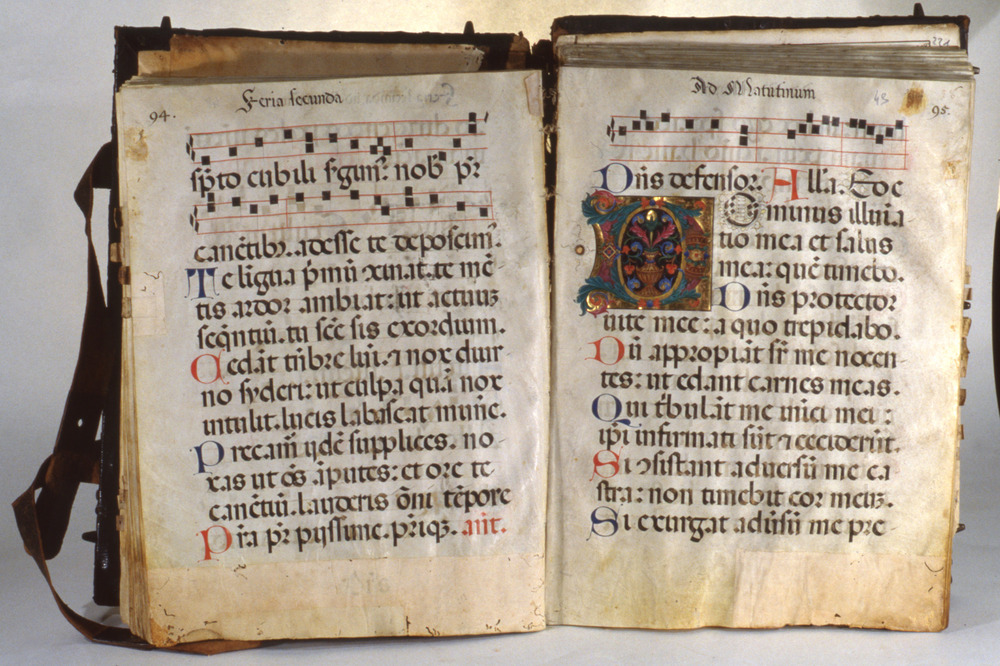 94.
Feria secunda
sp̄to cubili s̄gim᷑ nob̄ pr̄
canētib᷒. adesse te deposcim᷒.
Te ligna p̄mū xīnat. te mē
tis ardor ambiat: ut actuuȝ
seqn̄tiū. tu scē sis exordium.
Cedāt tn̄bre lūi. ⁊ nox diur
no sydeḿ: ut culpa quā nox
intulit. lucis labascat munē.
Precam᷒ ijdē supplices. no-
xas ut oēs āputes: et ore te
canētiū. lauderis ōni tēpore
Pr̄a pr̄ pijssime. pr̄iqȝ. añt.
Ad Matutinum
95.
Dn̄s defensor. Alla. Eoe
Ominus illuīa
tio mea et salus
mea: quē timebo.
Dn̄s protector
uite mee: a quo trepidabo.
Dū appropiāt sr̄ me nocen-
tes: ut edant carnes meas.
Qui tbulāt me īmici mei:
ip̄i infirmati sūt ⁊ ceciderūt.
Si ɔsistant aduersū me ca
stra: non timebit cor meuȝ.
Si exurgat adūsū me pre-